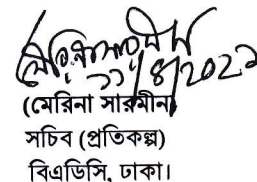 ২২/৪/2021
(মেরিনা সারমীন)
সচিব (প্রতিকল্প)
বিএডিসি, ঢাকা।